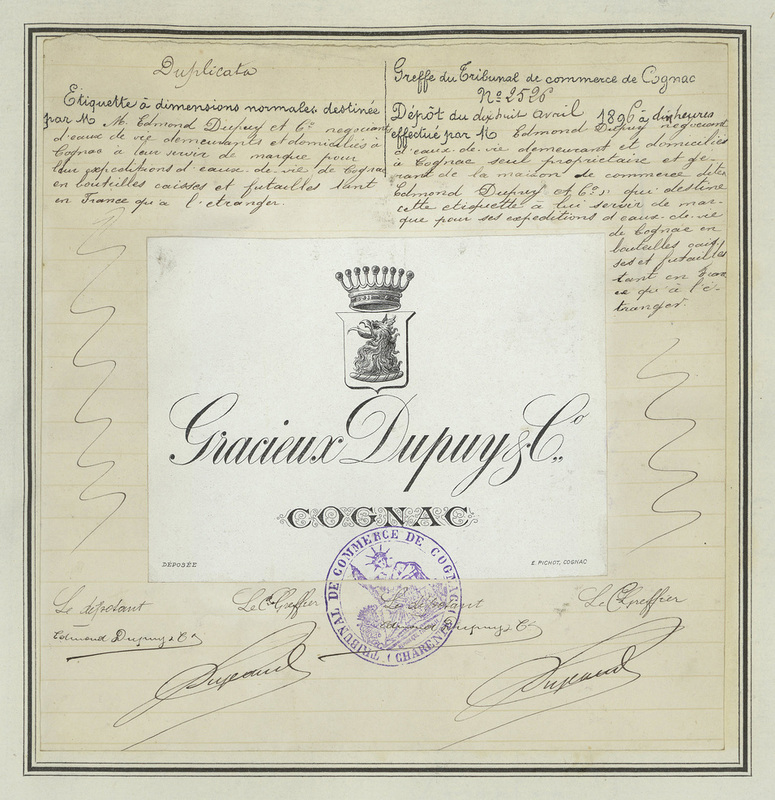 Duplicata
Etiquette à dimensions normales destinée
par M M. Edmond Dupuy et Cº negociant
d'eaux de vie demeurants et domiciliés à
Cognac à leur servir de marque pour
leur expeditions d'eaux-de-vie de Cognac
en bouteilles caisses et futailles tant
en France qu'a l'etranger.
Greffe du Tribunal de commerce de Cognac
Nº 2526
Dépôt du dix huit avril 1896 à dix heures
effectué par M Edmond Dupuy negociant
d'eaux-de-vie demeurant et domicilié
à Cognac seul propriétaire et ge-
rant de la maison de commerce dite
Edmond Dupuy et Cº qui destine
cette etiquette à lui servir de mar-
que pour ses expeditions d'eaux-de-vie
de Cognac en
bouteilles cais-
ses et futailles
tant en Fran
ce qu'à l'é-
tranger.
Gracieux Dupuy & Cº
COGNAC
DÉPOSÉE
E. PICHOT, COGNAC
TRIBUNAL DE COMMERCE DE COGNAC (CHARENTE)
Le déposant
Le C. Greffier
Le déposant
Le C. Greffier
Edmond Dupuy & Cº
Edmond Dupuy & Cº